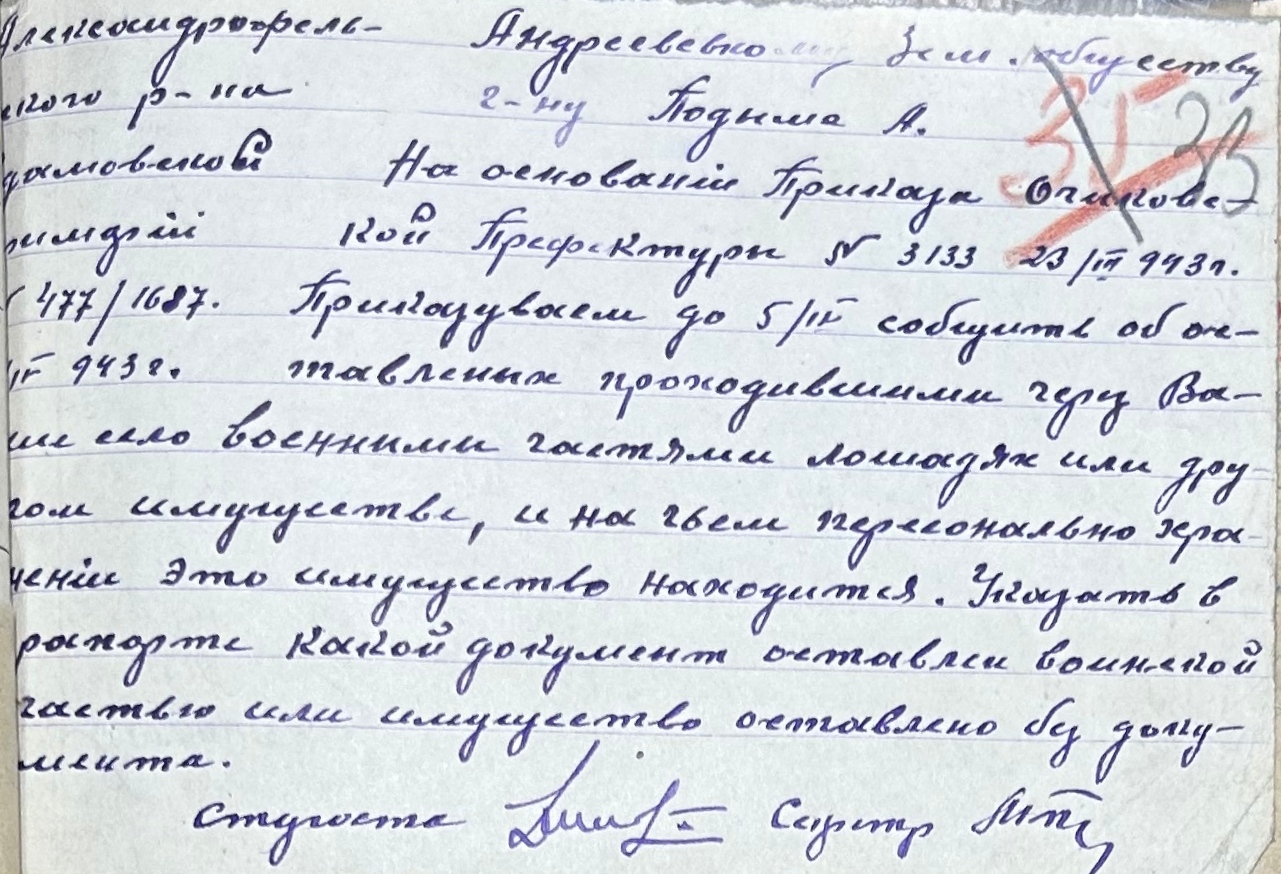 Александрофель- Андреевевкому Зем. обществу
ского р-на г-ну Подыма А.
35 33
дамовской На основаніи Приказа Очаковс-
римэрій кой Префектуры N 3133 23/III 943г.
477/1687. Приказуваем до 5/IV сообщить об ос-
943г. тавленых проходившими через Ва-
ше село военными частями лошадях или дру-
гом имуществе, и на чьем персонально хра-
неніи это имущество находится. Указать в
рапорте какой документ оставлен воинской
частью или имущество оставлено без доку-
мента.
Староста Секретр